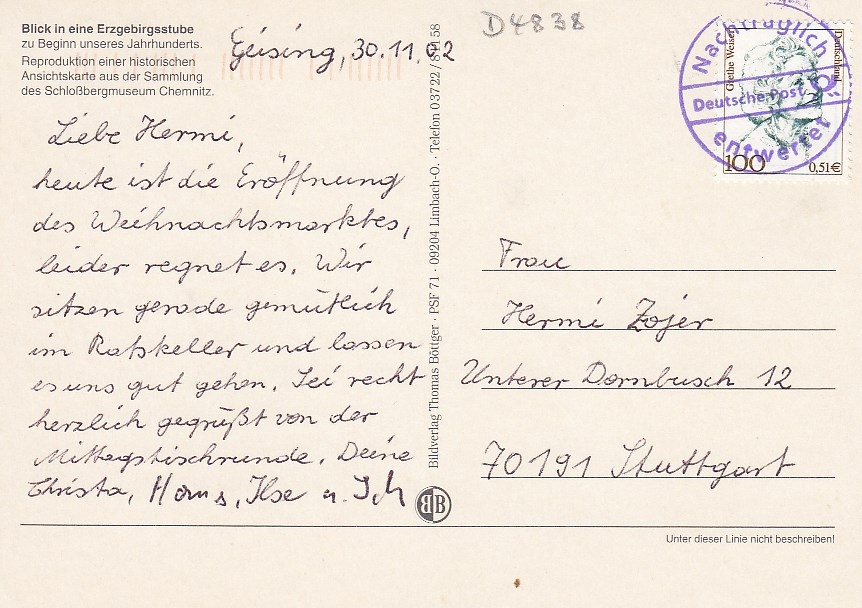 Blick in eine Erzgebirgsstube
zu Beginn unseres Jahrhunderts.
Reproduktion einer historischen
Ansichtskarte aus der Sammlung
des Schloßbergmuseum Chemnitz.
Geising, 30.11.02
Liebe Hermi,
heute ist die Eröffnung
des Weihnachtsmarktes,
leider regnet es. Wir
sitzen gerade gemütlich
im Ratskeller und lassen
es uns gut gehen. Sei recht
herzlich gegrüßt von der
Mittagstischrunde. Deine
Christa, Hans, Ilse u.
Bildverlag Thomas Böttger · PSF 71 · 09204 Limbach-O. · Telefon 037 22 / 58
BB
D4838
Nachträglich
Deutsche Post
entwertet
Grethe Weiser
Deutschland
100
0,51€
Frau
Hermi Zojer
Unterer Dornbusch 12
70191 Stuttgart
Unter dieser Linie nicht beschreiben!